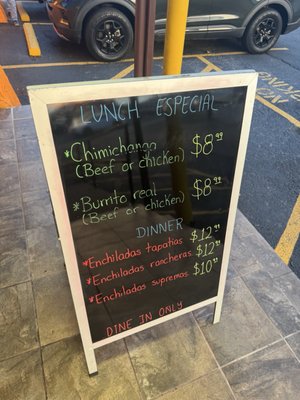 LUNCH ESPECIAL
*Chimichanga $8.99
(Beef or chicken)
*Burrito real $8.99
(Beef or chicken)
DINNER
*Enchiladas tapatias $12.99
*Enchiladas rancheras $12.99
*Enchiladas supremas $10.99
DINE IN ONLY